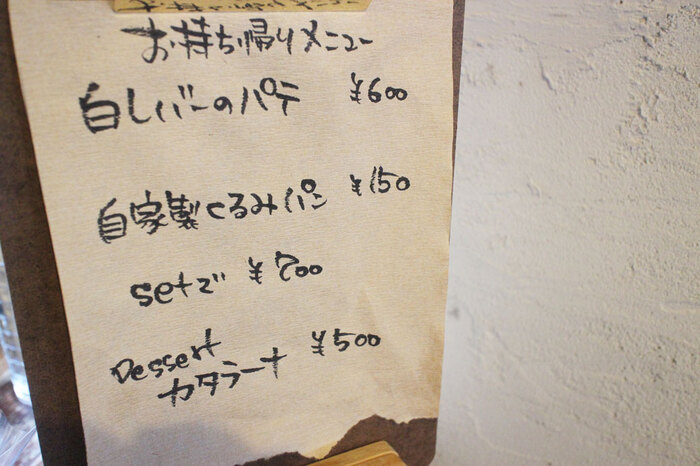 お持ち帰りメニュー
白レバーのパテ ¥600
自家製くるみパン ¥150
setで ¥700
Dessert ¥500
カタラーナ